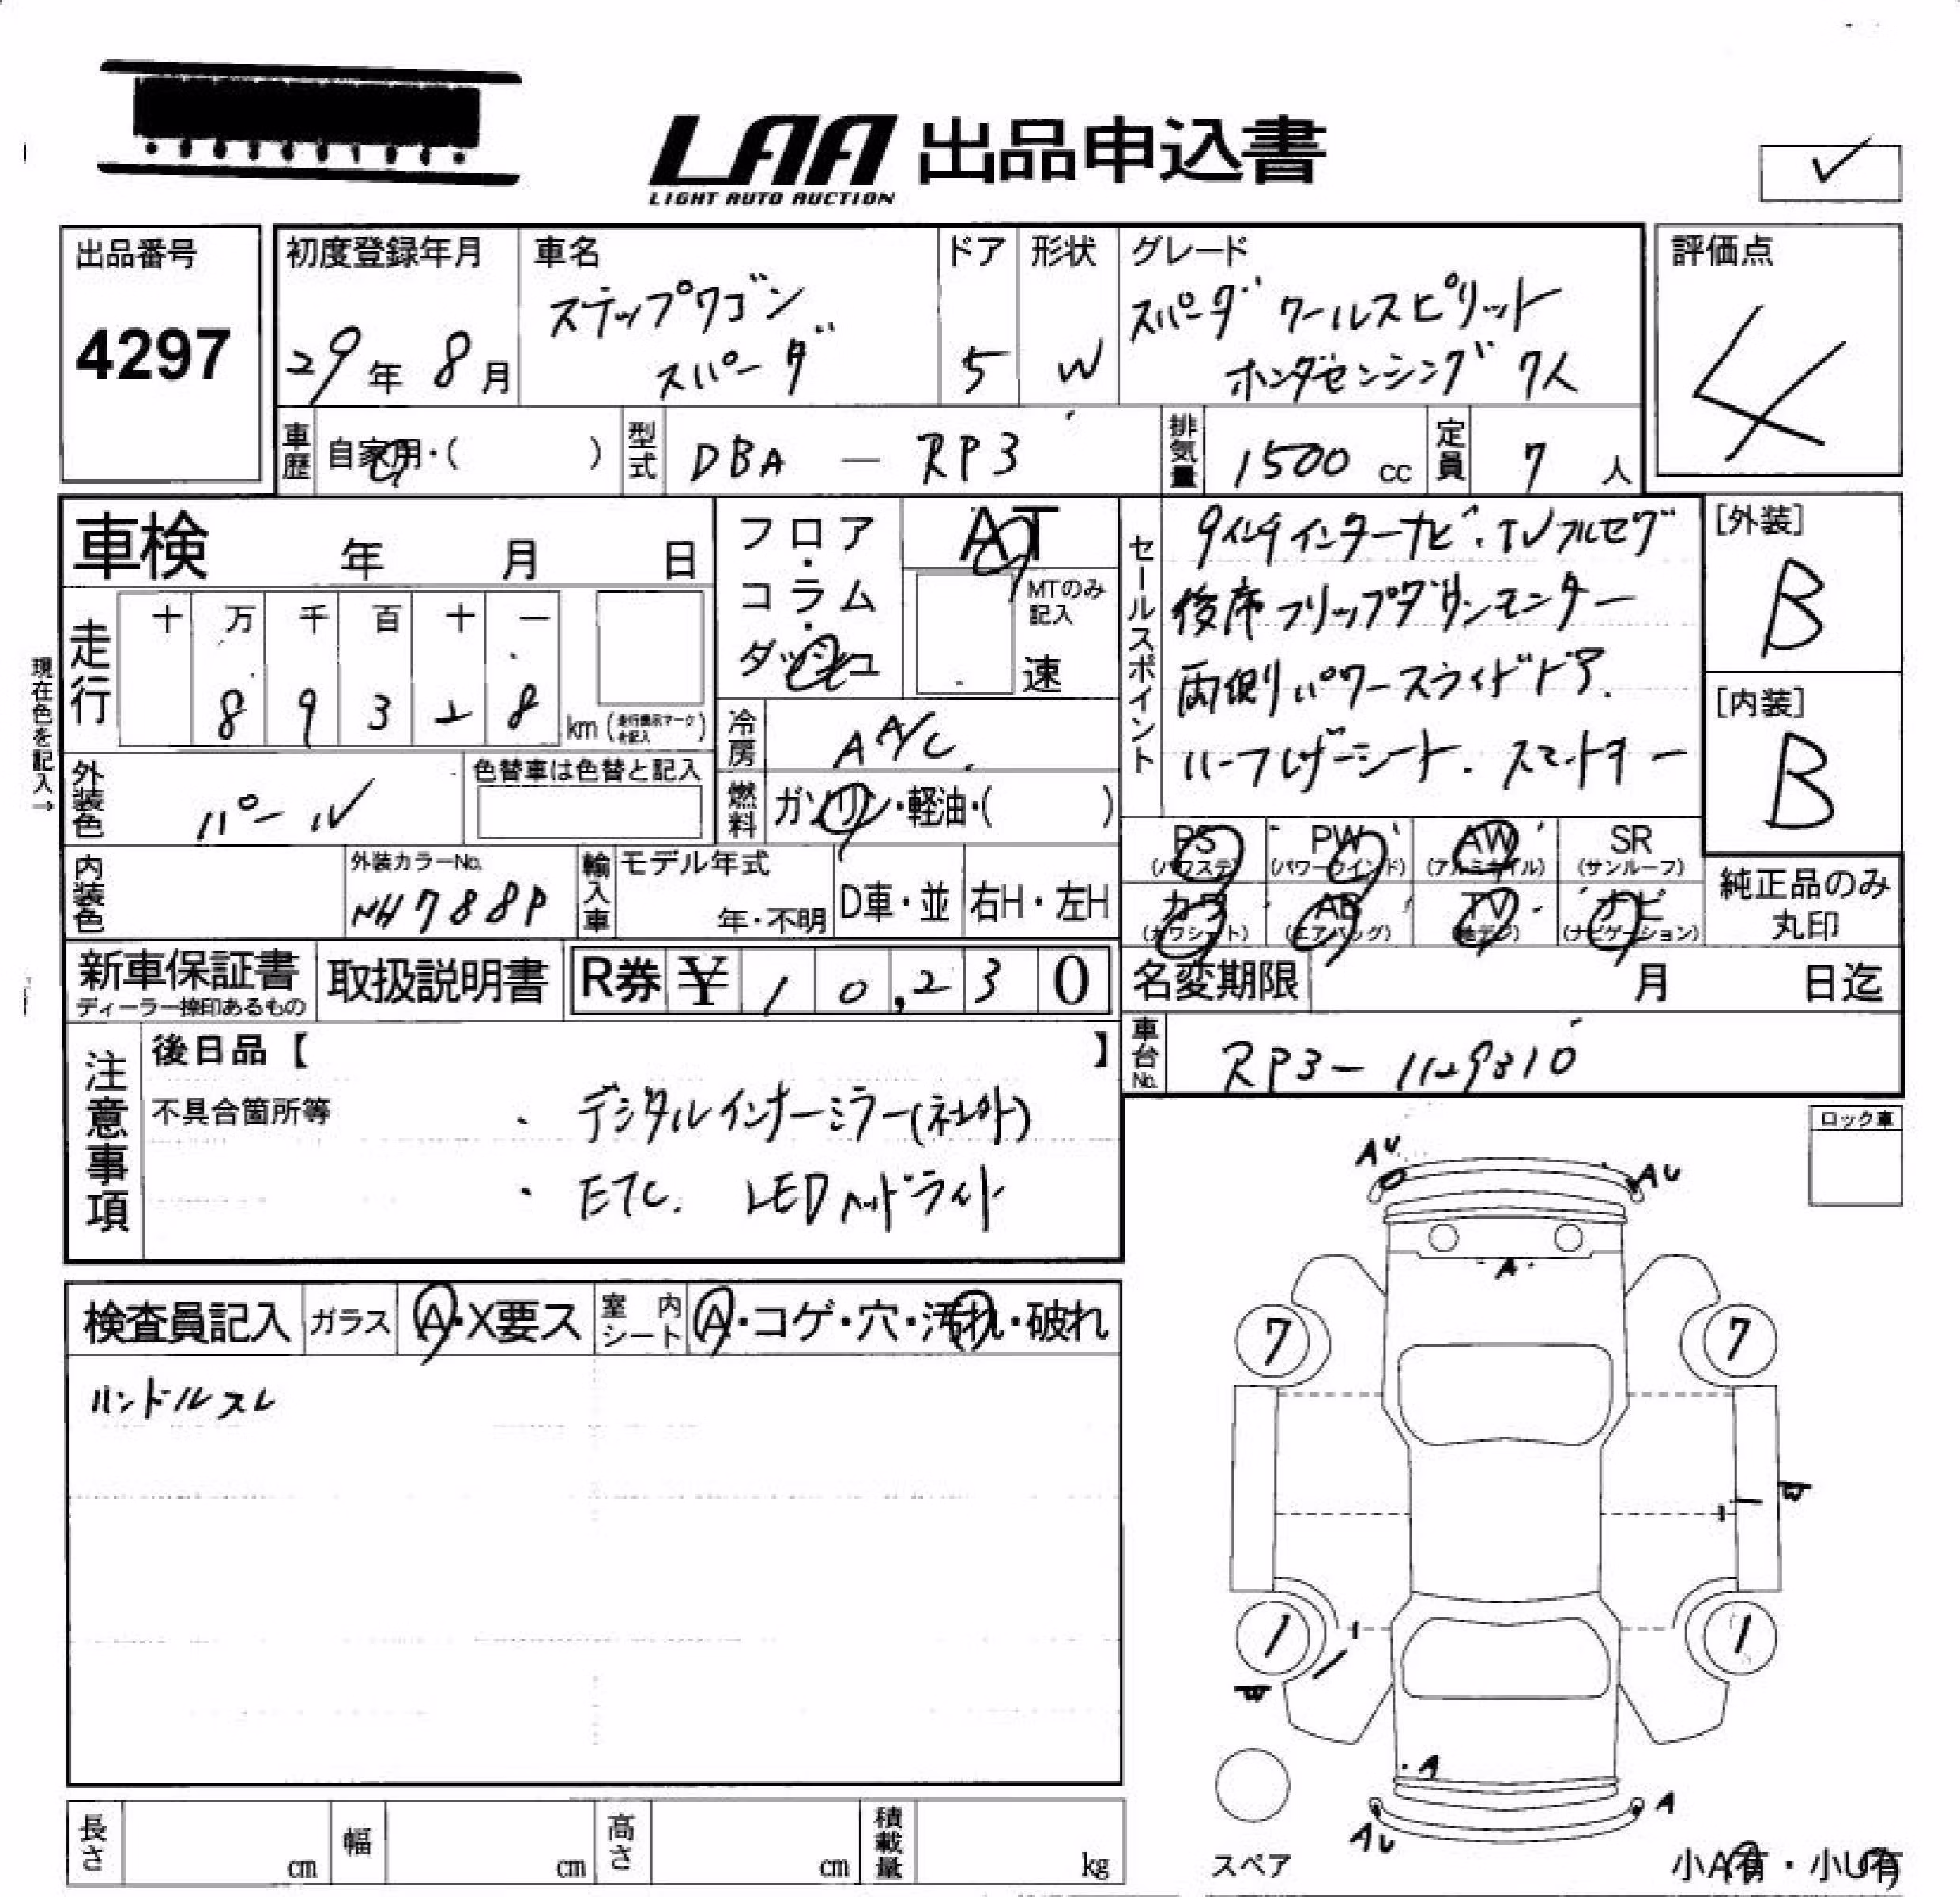 LAA 出品申込書
LIGHT AUTO AUCTION
✓
出品番号
4297
初度登録年月
29年 8月
車名
ステップワゴン
スパーダ
ドア
5
形状
W
グレード
スパーダ クールスピリット
ホンダセンシング 7人
評価点
4
車歴
自家用・( )
型式
DBA - RP3
排気量
1500 cc
定員
7 人
車検 年 月 日
フロア・コラム・ダッシュ
AT
MTのみ記入
速
セールスポイント
9インチインターナビ・TVフルセグ
後席フリップダウンモニター
両側パワースライドドア.
ハーフレザーシート. スマートキー
[外装]
B
[内装]
B
現在色を記入→
走行
十 万 千 百 十 一
8 9 3 2 8
km (走行表示マークを記入)
冷房
AA/C.
外装色
パール
色替車は色替と記入
燃料
ガソリン・軽油・( )
内装色
外装カラーNo.
NH788P
輸入車
モデル年式
年・不明
D車・並
右H・左H
PS (パワステ)
PW (パワーウインド)
AW (アルミホイル)
SR (サンルーフ)
カワ (カワシート)
AB (エアバッグ)
TV (地デジ)
ナビ (ナビゲーション)
純正品のみ
丸印
新車保証書
ディーラー捺印あるもの
取扱説明書
R券 ¥ 10,230
名変期限 月 日迄
車台No.
RP3-1129310
注意事項
後日品【 】
不具合箇所等
・ デジタルインナーミラー(社外)
・ ETC. LEDヘッドライト
ロック車
検査員記入
ガラス
A・X要ス
室内シート
A・コゲ・穴・汚れ・破れ
ハンドルスレ
AU
AU
A
7
7
W
1
1
W
A
A
AU
スペア
小A有・小U有
長さ cm
幅 cm
高さ cm
積載量 kg